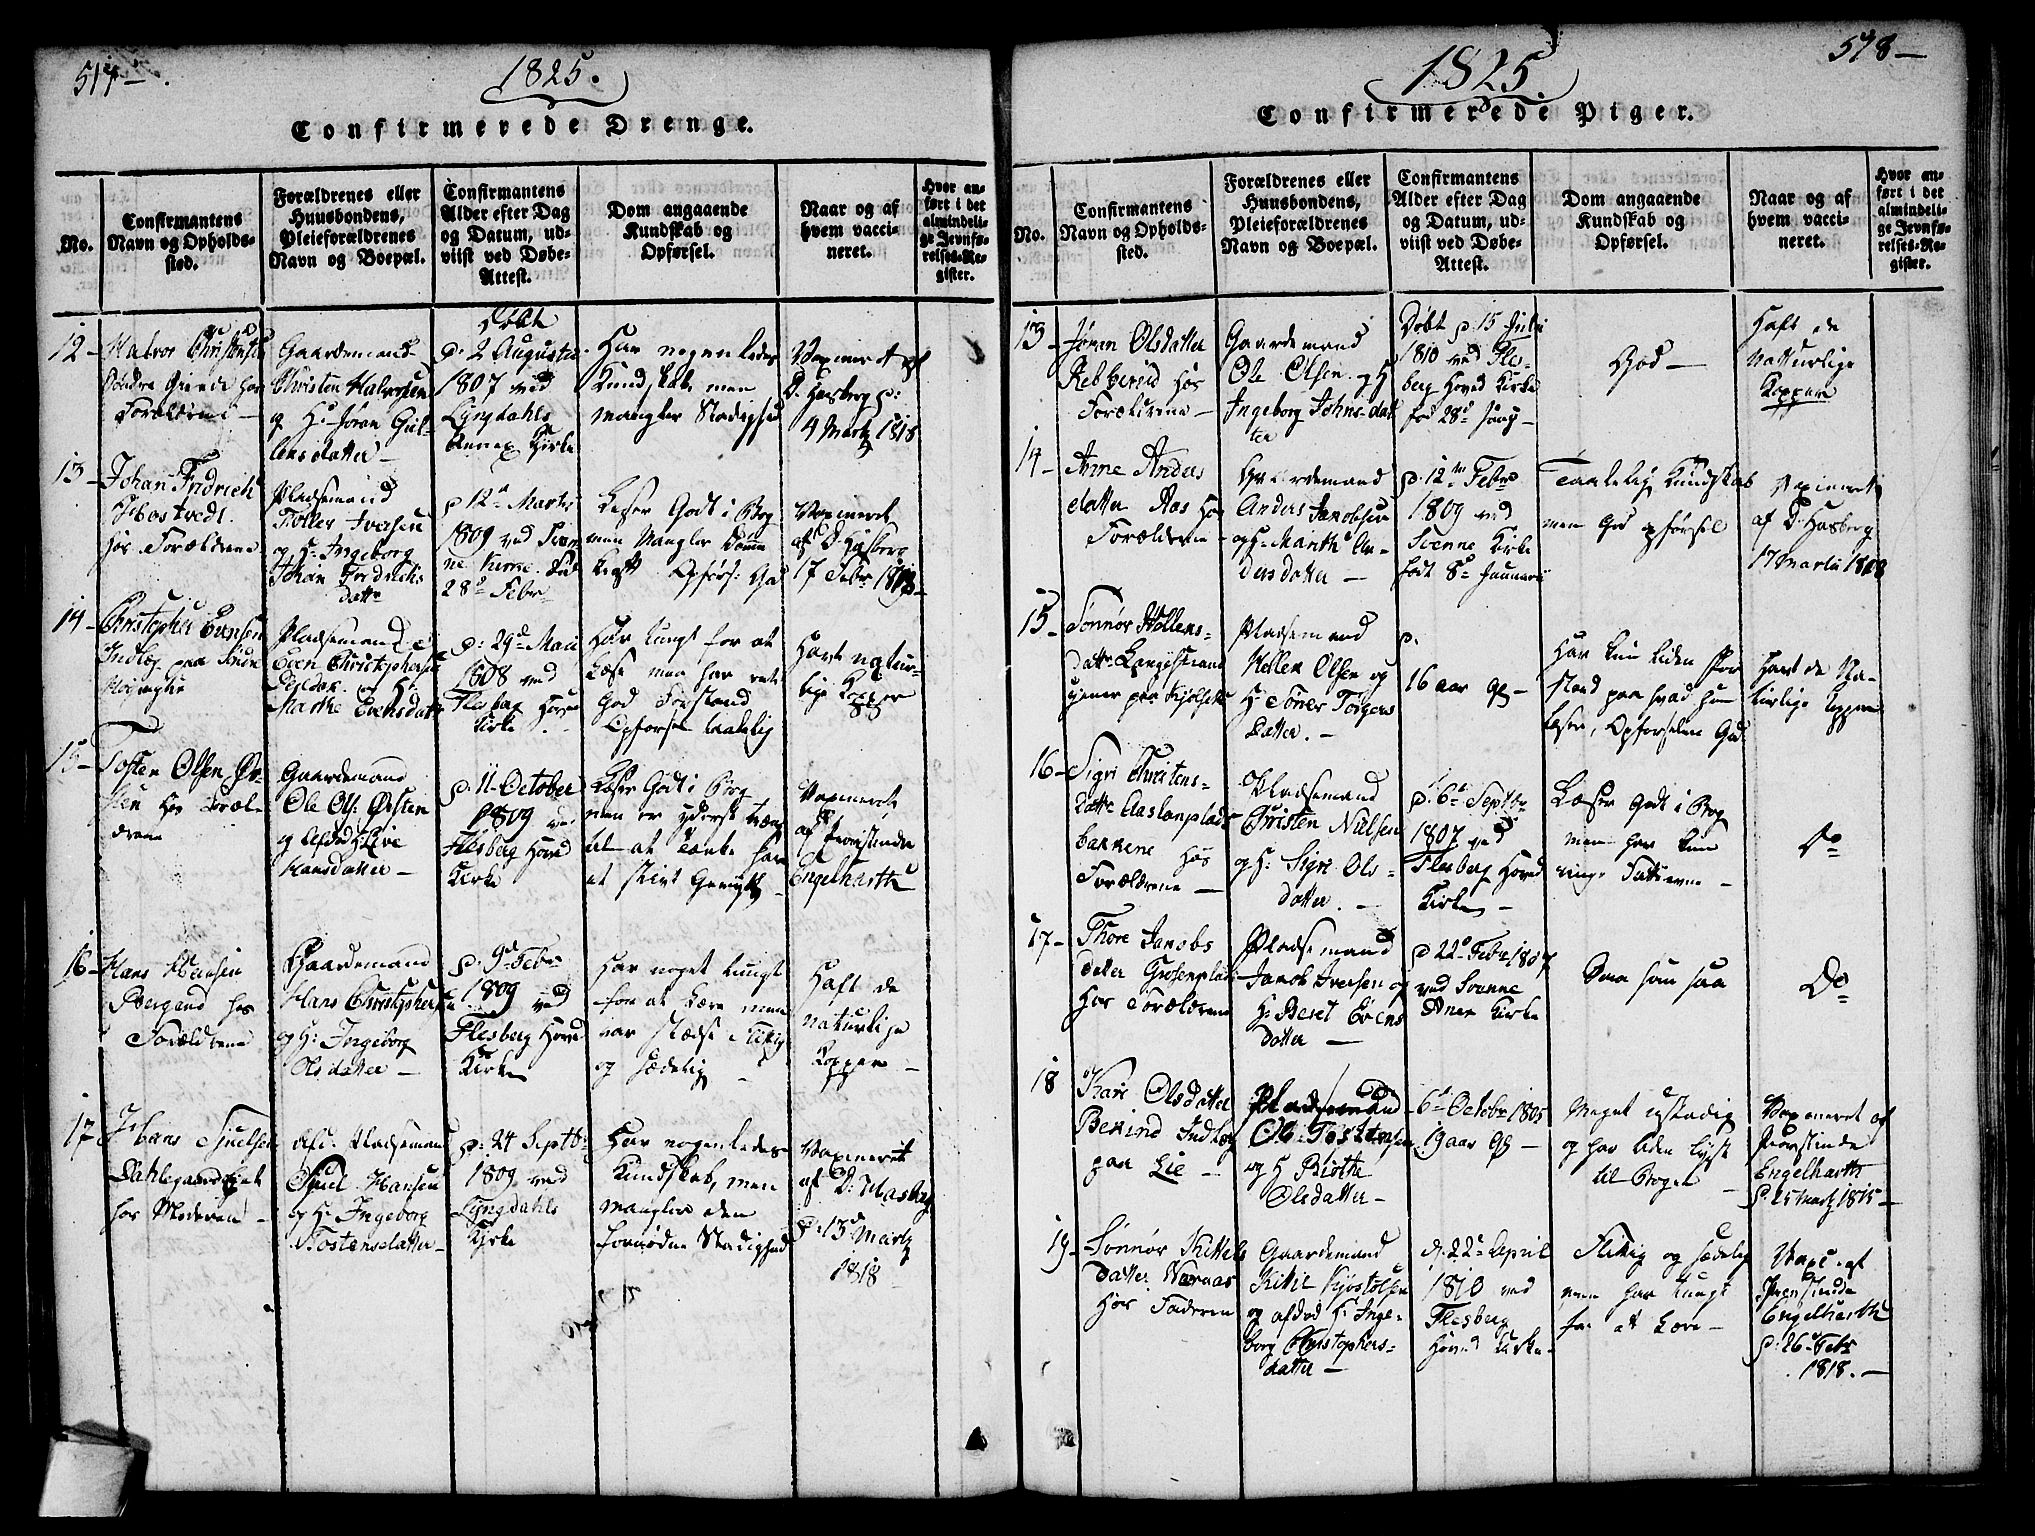 517 —
1825.
Confirmerede Drenge.
No.
Confirmantens
Navn og Opholds-
sted.
Forældrenes eller
Huusbondens,
Pleieforældrenes
Navn og Boepæl.
Confirmantens
Alder efter Dag
og Datum, ud-
viist ved Døbe-
Attest.
Dom angaaende
Kundskab og
Opførsel.
Naar og af
hvem vacci-
neret.
Hvor an-
ført i det
almindeli-
ge Jevnfø-
relses-Re-
gister.
12 –
Halvor Christensen
hos
Forældrene –
Gaardemand
Christen Halvorsen
og H: Jøran Gul-
lensdatter –
Døbt
d: 2 Augusti
1807 ved
Lyngdahls
Annex Kirke
Har nogenledes
Kundskab men
mangler Stadighed
Vaxineret af
D. Hasberg d:
4 Martz 1818
13 –
Johan Fridrich
Hostvedt.
hos Forældrene
Pladsemand
Tollef Iversen
og H: Ingeborg
Johan Fredrichs
datter
d 12te Martz
1809 ved Svenne
Kirke. Født
28de Febr –
Læser Godt i Bog
men Mangler
Opførs: God
Vaxineret
af D. Hasberg
17 Febr 1818 –
14 –
Christopher Evensen
Indlæg paa
Pladsemand
Even Christophersen
og H:
Marthe Evensdatter
d: 29de Marti
1808 ved
Flesberg Hoved
Kirke.
Har tungt for at
Læse men har
God Forstand
Opførsel taalelig
Havt natur-
lige Kopper
15 –
Tosten Olsen Ør-
sten hos Foræl-
drene
Gaardemand
Ole Ols: Ørsten
og Afdød H Live
Hansdatter –
d. 11 October
1809 ved
Flesberg Hoved
Kirke
Læser Godt i Bog
men er yderst træg
til at Tænke har
et stivt Gemyt –
Vaxineret
af Provstinde
Engelharth
16 –
Hans Hansen
Bergerud hos
Forældrene
Gaardemand
Hans Christophersen
og H: Ingeborg
Olsdatter –
d: 9de Febr
1809 ved
Flesberg Hoved
Kirke
Har noget tungt
for at Lære men
var stædse flittig
og sædelig –
Haft de
naturlige
Kopper –
17 –
Hans Sjulsen
Dahlegaardseiet
hos Moderen –
Afd: Pladsemand
Sjul Hansen
og H: Ingeborg
Tostensdatter –
d: 24 Septbr
1809 ved
Lyngdahls
Kirke
Har nogenledes
Kundskab, men
mangler den
fornødne Stadighed
Vaxineret
af D: Hasberg
d: 13de Martz
1818
578 —
1825.
Confirmerede Piger.
No.
Confirmantens
Navn og Opholds-
sted.
Forældrenes eller
Huusbondens,
Pleieforældrenes
Navn og Boepæl.
Confirmantens
Alder efter Dag
og Datum, ud-
viist ved Døbe-
Attest.
Dom angaaende
Kundskab og
Opførsel.
Naar og af
hvem vacci-
neret.
Hvor an-
ført i det
almindeli-
ge Jevnfø-
relses-Re-
gister.
13 –
Jøren Olsdatter
hos
Forældrene –
Gaardemand
Ole Olsen og H
Ingeborg Johns-dat
ter
Døbt d. 15 Julii
1810 ved Fles-
berg Hoved Kirke
fød 28de
God –
Haft de
Natturlige
Kopper
14 –
Anne Anders
datter Aas hos
Forældrene –
Gaardemand
Anders Jacobsen
og H: Marthe An-
dersdatter –
d. 12te Febr
1809 ved
Svenne Kirke
født 8de Januarii
Taalelig Kundskab
men God opførsel
Vaxineret
af D. Hasberg
17 Martii 1818
15 –
Sønnøv Hellens-
datter Langestrand
tjener paa
Pladsemand
Hellen Olsen og
H Tøner Torgers
datter. –
d.
16 aar g. –
Har kun liden For
stand paa hvad hun
læser, Opførselen God.
Havt de Na-
turlige Kopper
16 –
Sigri Christens-
datter Aaslanplads
bakkene hos
Forældrene –
Pladsemand
Christen Nielsen
og H: Sigri Ols-
datter. –
d: 6te Septbr
1807 ved
Flesberg Hoved
Kirke –
Læser Godt i Bog
men har kun
ringe Fatteevne –
Do
17 –
Thore Jacobs
datter
hos Forældrene
Pladsemand
Jacob Iversen og
H: Beret Evens
datter –
d 22de Febr 1807
ved Svenne
Anex Kirke
Saa som saa
Do
18
Kari Olsdatter
Berind Indlæg
paa Lie –
Pladsemand
Ole Tostensen
og H Birthe
Olsdatter –
6te Octobr 1805
19 aar g. –
Meget ustadig
og har liden Lyst
til Bogen –
Vaxineret af
Provstinde
Engelharth
d. 25 Martz 1815 –
19 –
Sønnøv Kittels
datter Næraas
hos Faderen
Gaardemand
Kittil Kjøstolsen
og afdød H: Inge-
borg Christophers-
datter –
d. 22de April
1810 ved
Flesberg
Hoved Kirke –
Flittig og sædelig
men har tungt
for at Lære –
Vaxi. af
Provstinde
Engelharth
d: 26 Febr
1818. –